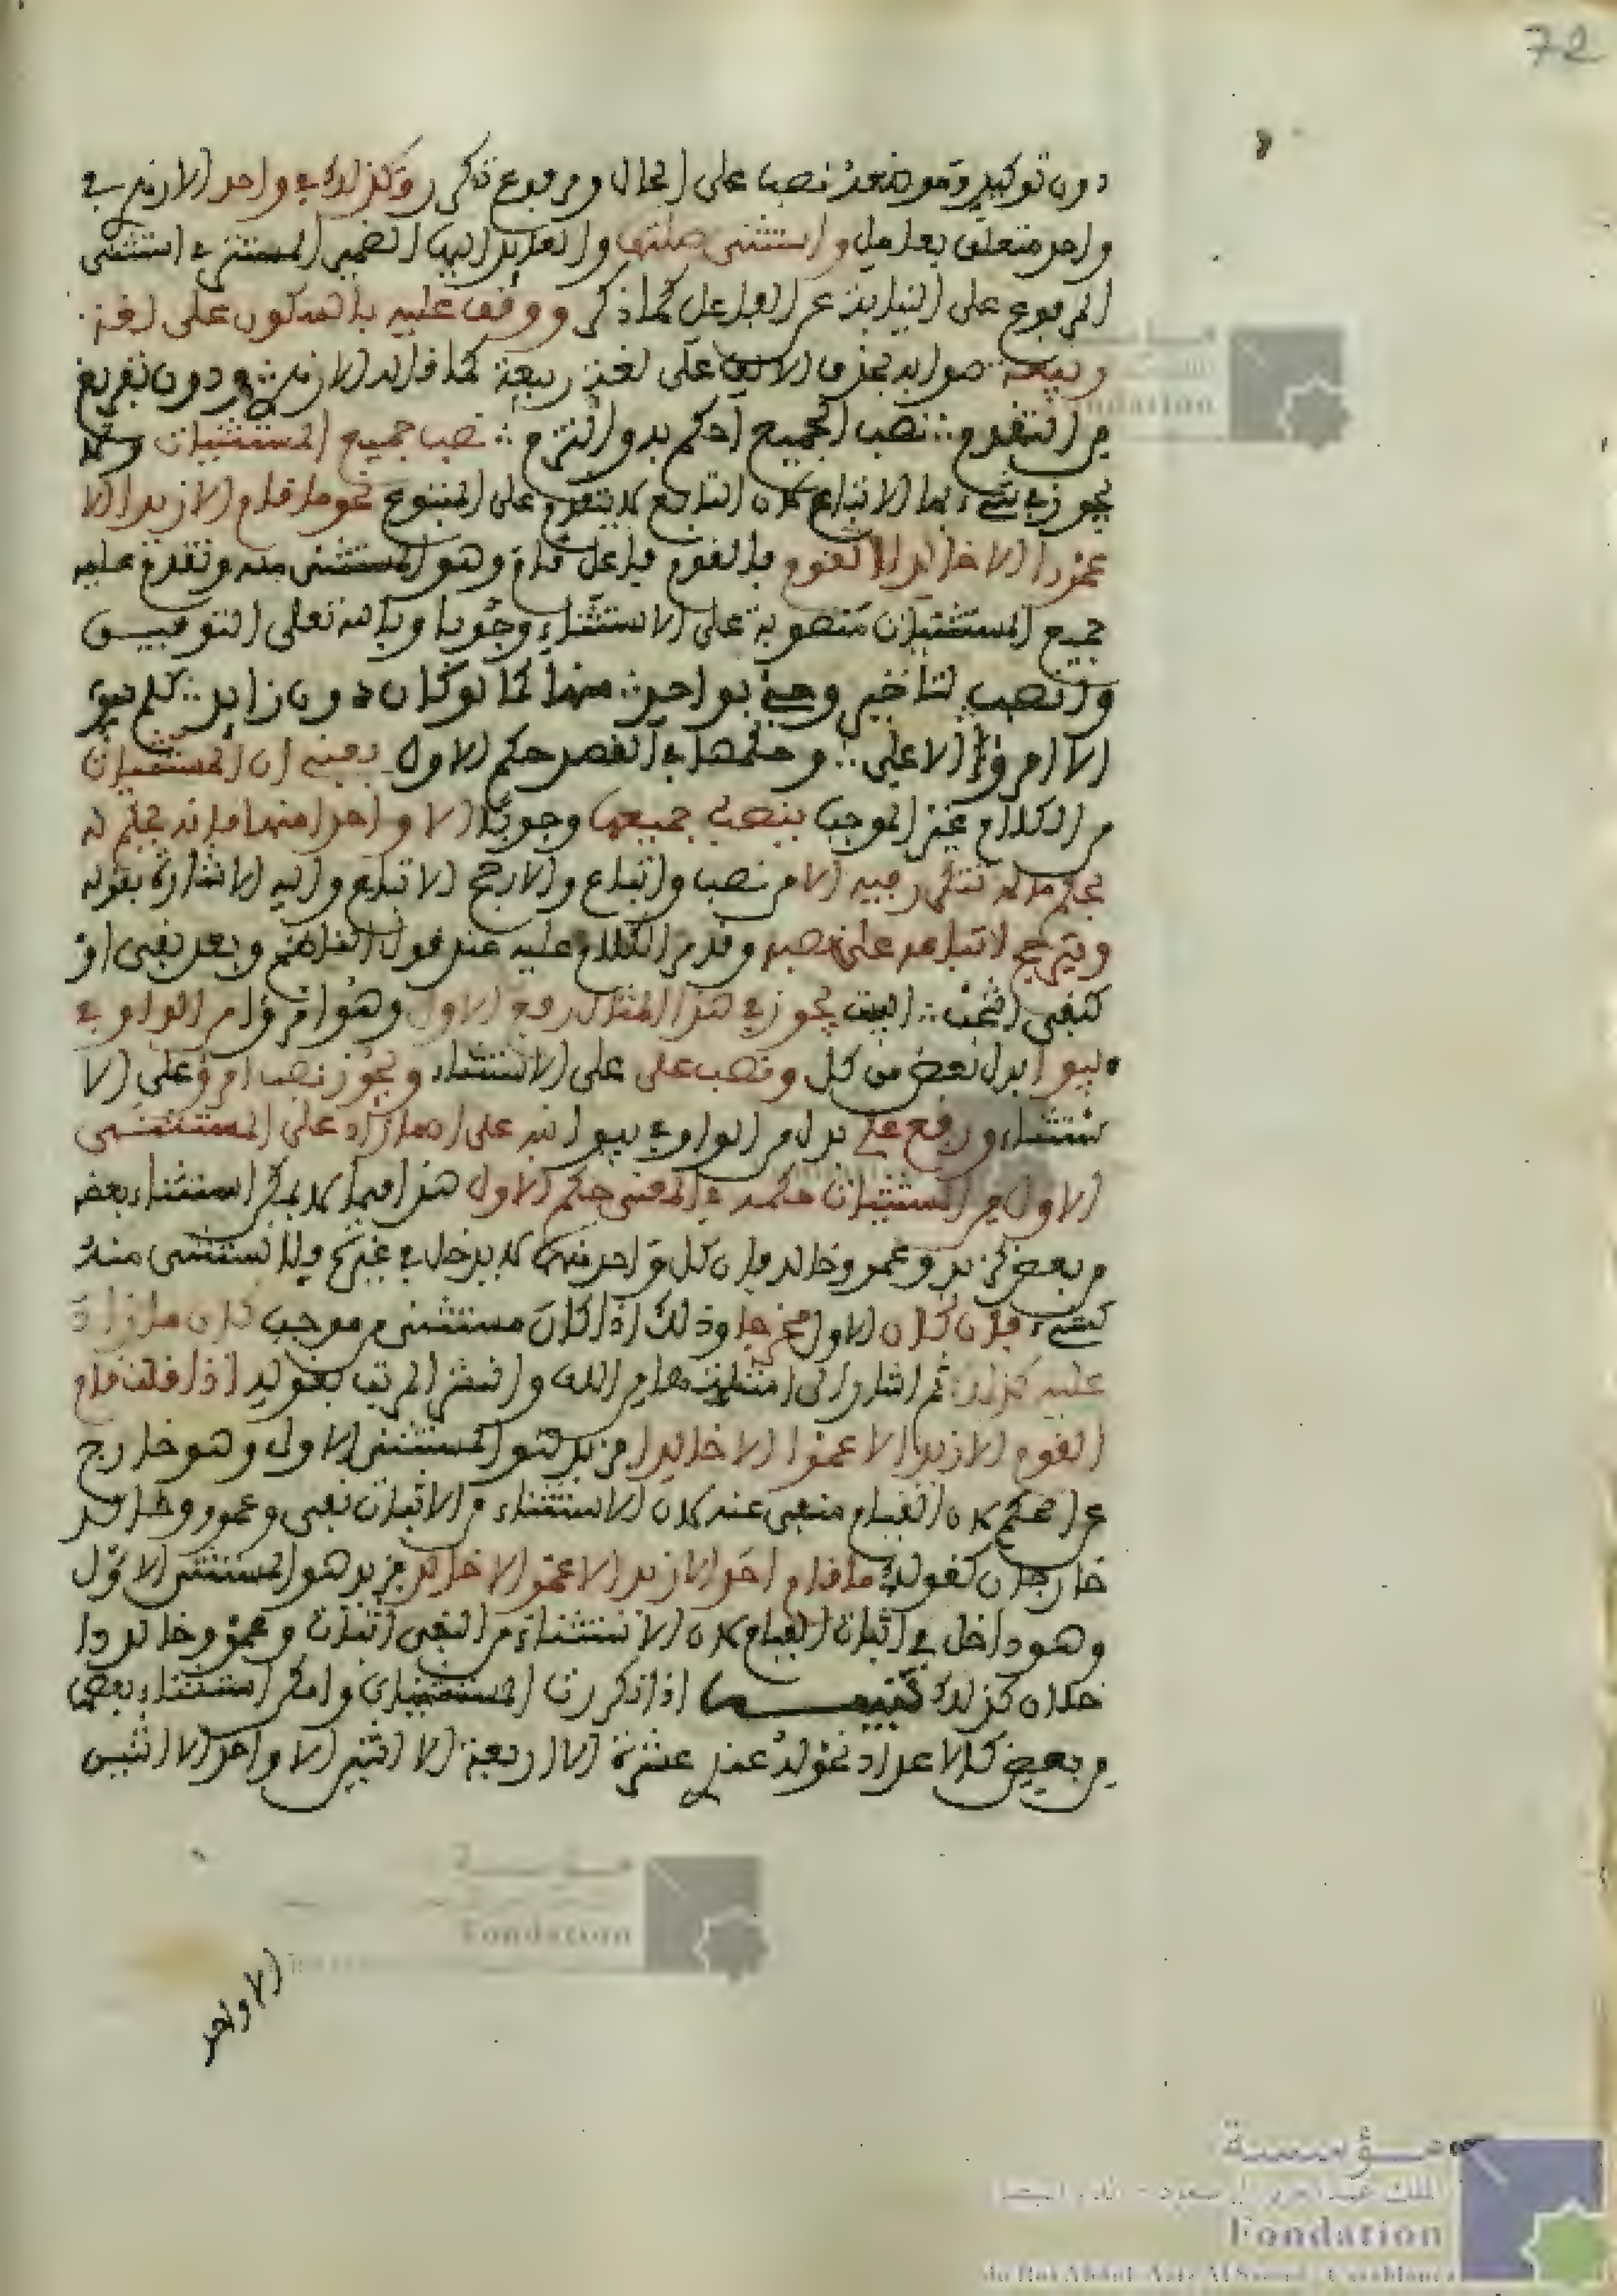 72
دون توكيد وموضعه نصب على الحال ومرفوع ذكر وكذلك في واحد الازمن في
واحد متعلق بعامل واستثنى صلتها والعائد اليها الضمير المستتر في استثنى
المرفوع على النيابة عن الفاعل كما ذكر ووقف عليه بالسكون على لغة
ربيعة صوابه بحذف الالف على لغة ربيعة كما قاله الازمن ودون تفريغ
مع التقدم ∴ نصب الجميع احكم به والتزم ∴ نصب جميع المستثنيات ولا
يجوز في شيء منها الاتباع لان التابع لا يتقدم على المتبوع نحو ما قام الا زيدا الا
عمرا الا خالدا القوم فالقوم فاعل قام وهو المستثنى منه وتقدم عليه
جميع المستثنيات منصوبة على الاستثناء وجوبا وبالله تعلى التوفيق
وانصب لتاخير وجئ بواحد ∴ منها كما لو كان دون زايد ∴ كلم يفوا
الا امرؤ الا علي ∴ وحكمها في القصد حكم الاول يعني ان المستثنيات
من الكلام غير الموجب ينصب جميعها وجوبا الا واحدا منها فانه يحكم له
بحكم ما لم تتكرر فيه الا من نصب واتباع والارجح الاتباع واليه الاشارة بقوله
ويترجح لاتباعه على نصبه وقد مر الكلام عليه عند قول الناظم وبعد نفي او
كنفي انتخب ∴ البيت يجوز في هذا المثال رفع الاول وهو امرؤ من الواو في
يفوا بدل بعض من كل ونصب علي على الاستثناء ويجوز نصب امرؤ على الا
ستثناء ورفع علي بدل من الواو في يفوا نبه على ان ما زاد على المستثنى
الاول من المستثنيات حكمه في المعنى حكم الاول هذا فيما لا يمكن استثناء بعضه
من بعض كزيد وعمرو وخالد فان كل واحد منها لا يدخل في غيره ولا يستثنى منه
كشيء فان كان الاول مخرجا وذلك اذا كان مستثنى من موجب كان ما زاد
عليه كذلك ثم اشار الى امثلتهما من اللف والنشر المرتب بقوله اذا قلت قام
القوم الا زيدا الا عمرا الا خالدا فزيد هو المستثنى الاول وهو خارج
عن الحكم لان القيام منفي عنه لان الاستثناء من الاثبات نفي وعمرو وخالد
خارجان كقولك ما قام احد الا زيد الا عمرا الا خالدا فزيد هو المستثنى الاول
وهو داخل في اثبات القيام لان الاستثناء من النفي اثبات وعمرو وخالد دا
خلان كذلك تتميم اذا تكررت المستثنيات وامكن استثناء بعضها
من بعض كالاعداد نحو له عندي عشرة الا اربعة الا اثنين الا واحد الا اثنين
الا واحد
مؤسسة
Fondation
مؤسسة
Fondation
مؤسسة
الملك عبد العزيز آل سعود - الدار البيضاء
Fondation
du Roi Abdul-Aziz Al Saoud - Casablanca